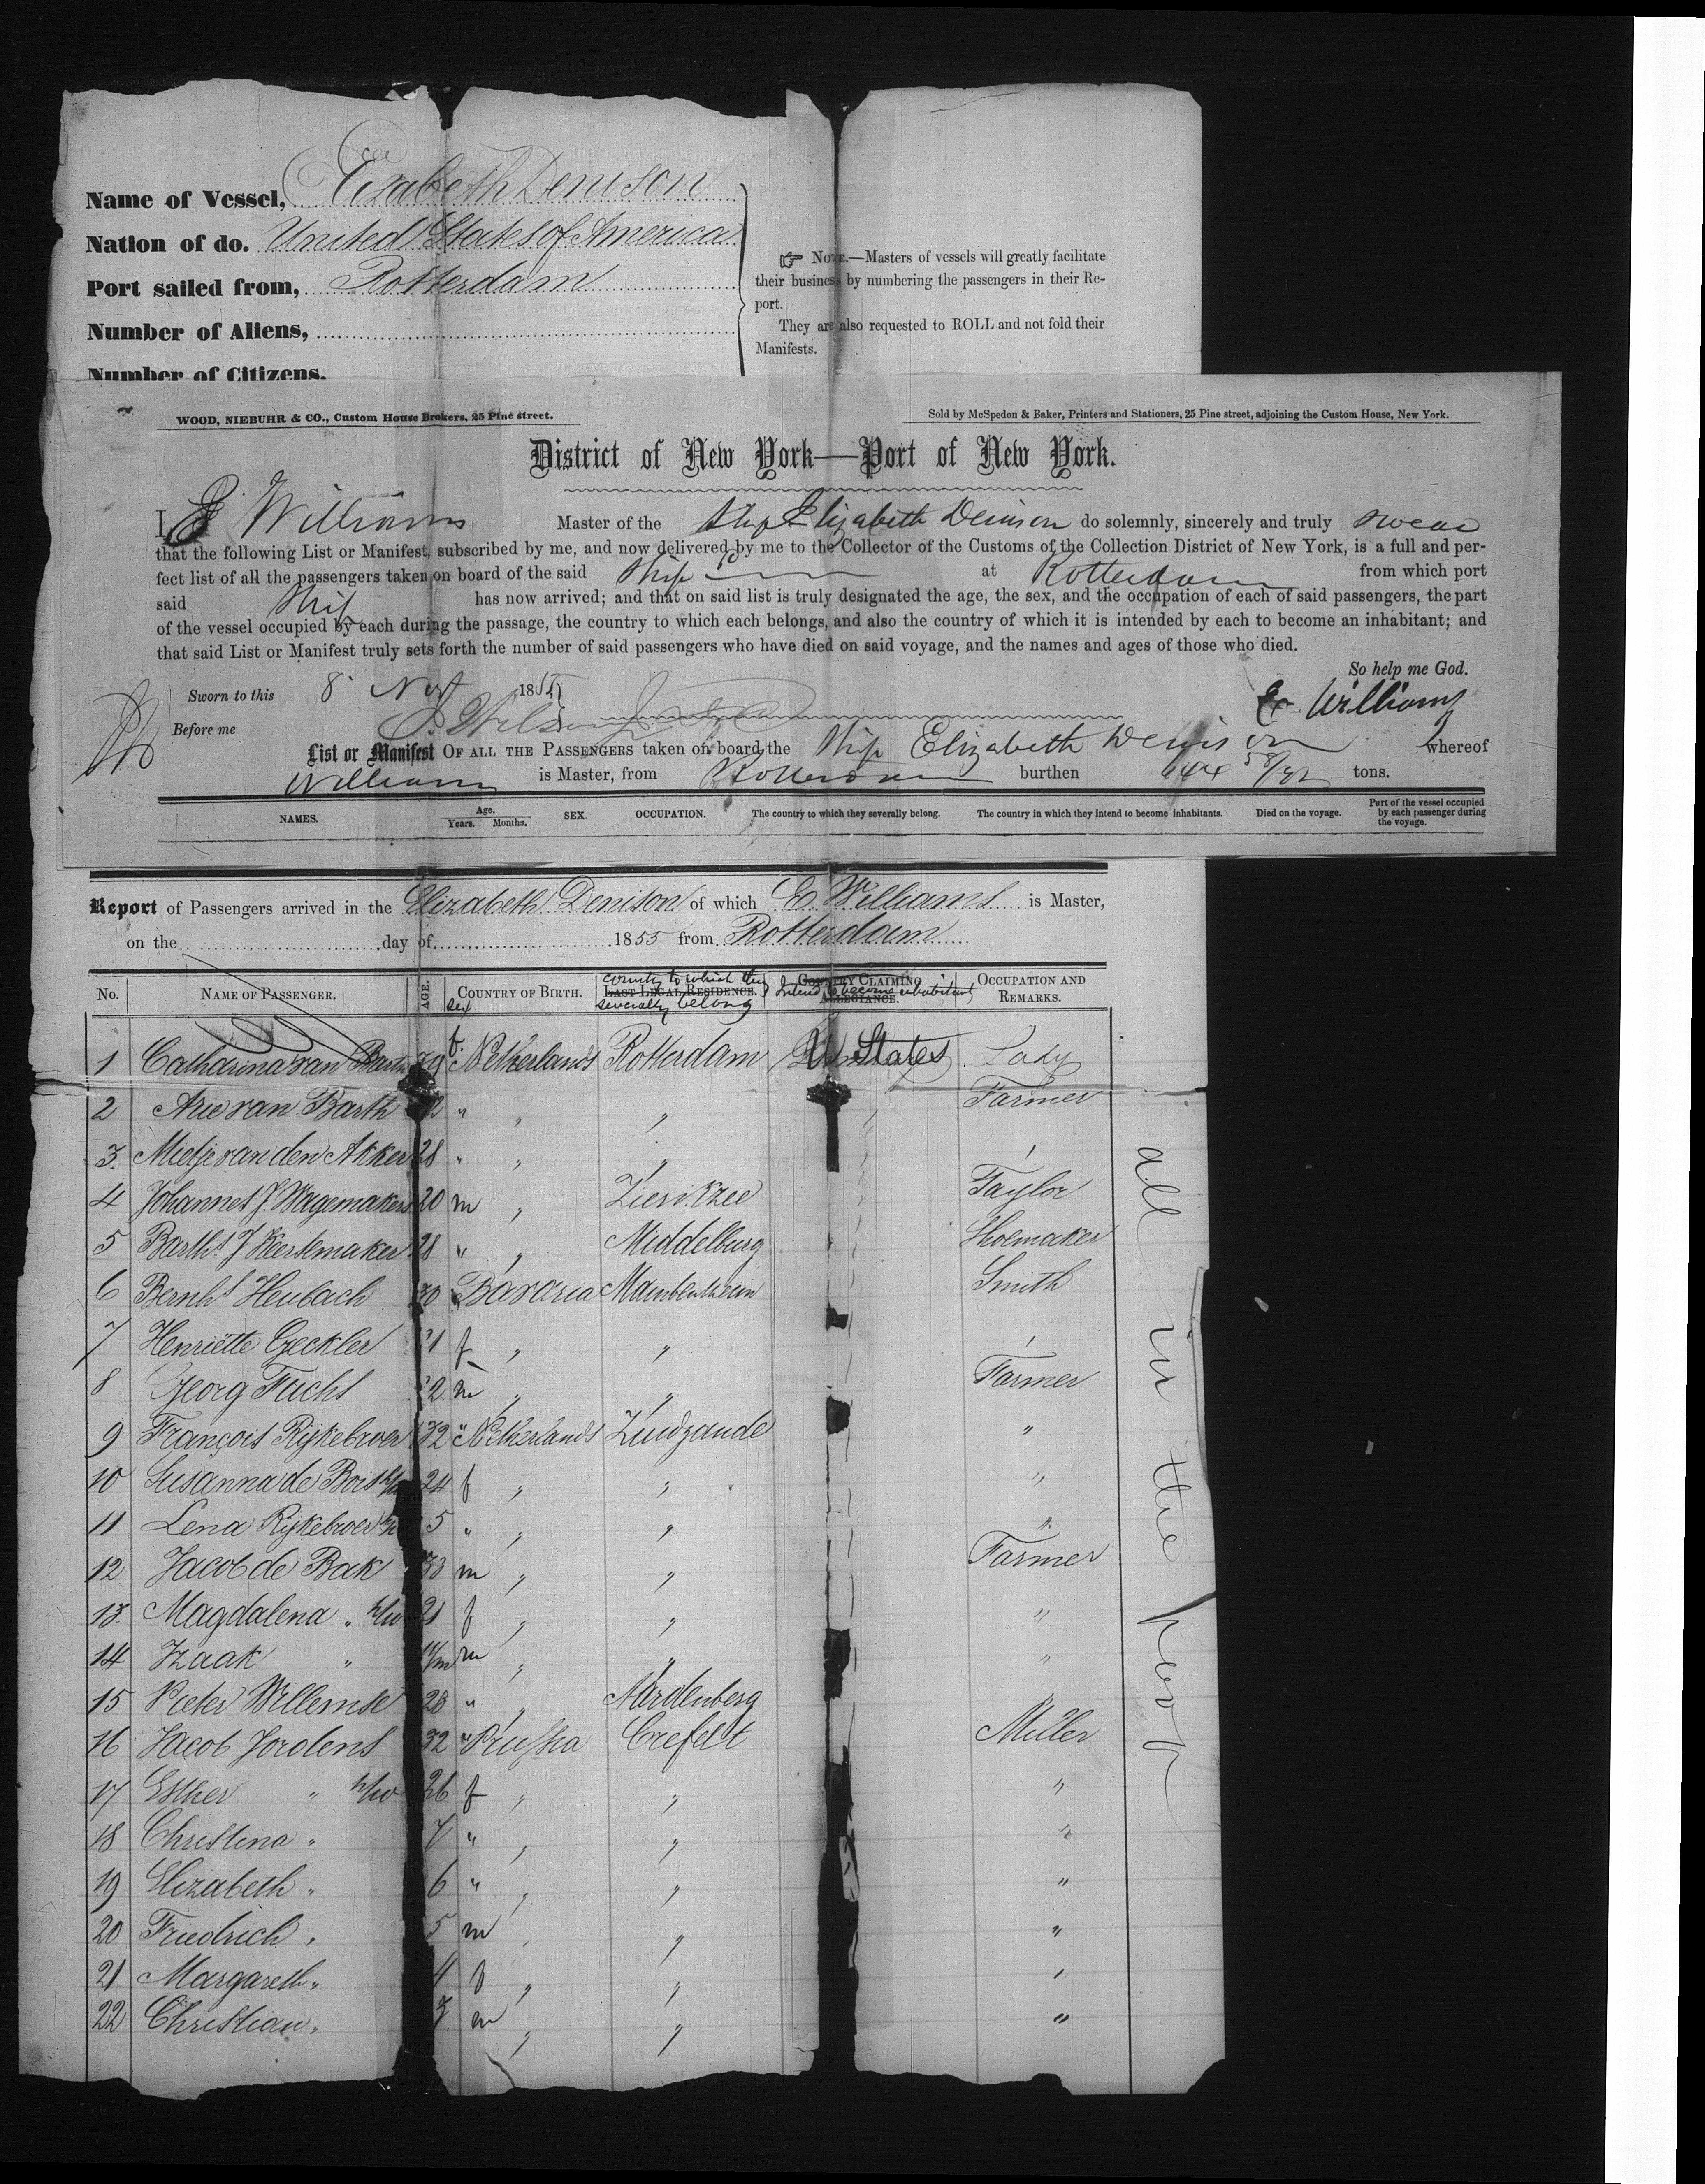 Name of Vessel, Elizabeth Denison
Nation of do. United States of America
Port sailed from, Rotterdam
Number of Aliens,
Number of Citizens.
☞ NOTE.—Masters of vessels will greatly facilitate
their business by numbering the passengers in their Re-
port.
They are also requested to ROLL and not fold their
Manifests.
WOOD, NIEBUHR & CO., Custom House Brokers, 25 Pine street.
Sold by McSpedon & Baker, Printers and Stationers, 25 Pine street, adjoining the Custom House, New York.
District of New York—Port of New York.
I, E Williams Master of the Ship Elizabeth Denison do solemnly, sincerely and truly swear
that the following List or Manifest, subscribed by me, and now delivered by me to the Collector of the Customs of the Collection District of New York, is a full and per-
fect list of all the passengers taken on board of the said Ship at Rotterdam from which port
said Ship has now arrived; and that on said list is truly designated the age, the sex, and the occupation of each of said passengers, the part
of the vessel occupied by each during the passage, the country to which each belongs, and also the country of which it is intended by each to become an inhabitant; and
that said List or Manifest truly sets forth the number of said passengers who have died on said voyage, and the names and ages of those who died.
So help me God.
Sworn to this 8 Nov 1855
E Williams
Before me
List or Manifest OF ALL THE PASSENGERS taken on board the Ship Elizabeth Denison whereof
Williams is Master, from Rotterdam burthen tons.
NAMES. Age. Years. Months. SEX. OCCUPATION. The country to which they severally belong. The country in which they intend to become inhabitants. Died on the voyage. Part of the vessel occupied by each passenger during the voyage.
Report of Passengers arrived in the Elizabeth Denison of which E. Williams is Master,
on the day of 1855 from Rotterdam
No. NAME OF PASSENGER. AGE. sex COUNTRY OF BIRTH. LAST LEGAL RESIDENCE. country to which they severally belong COUNTRY CLAIMING ALLEGIANCE. Intend to become inhabitant OCCUPATION AND REMARKS.
1 Catharina van f. Netherlands Rotterdam U States Lady
2 Arie van Barth " " " Farmer
3. Mietje van den Akker 28 " " " "
4 Johannes J. Wagemakers 20 m " Zierikzee Taylor
5 Barths J Keersemaker 28 " " Middelburg Shoemaker
6 Bernhd Heubach 30 " Bavaria Smith
7 Henriëtte Geckler f " " "
8 Georg Fuchs m " " Farmer
9 François Rijkebroer 32 " Netherlands Zuidzande "
10 Susanna de Bois 24 f " " "
11 Lena Rijkebroer 5 " " " "
12 Jacob de Bak 33 m " " Farmer
13. Magdalena " h/w 21 f " " "
14 Izaak " m " " "
15 Pieter Willemse 28 " " Aardenberg "
16 Jacob Jordens 32 " Prussia Crefelt Miller
17 Esther " h/w 26 f " " "
18 Christina " 7 " " " "
19 Elizabeth " 6 " " " "
20 Friedrich " 5 m " " "
21 Margareth " 4 f " " "
22 Christian " 3 m " " "
all in the